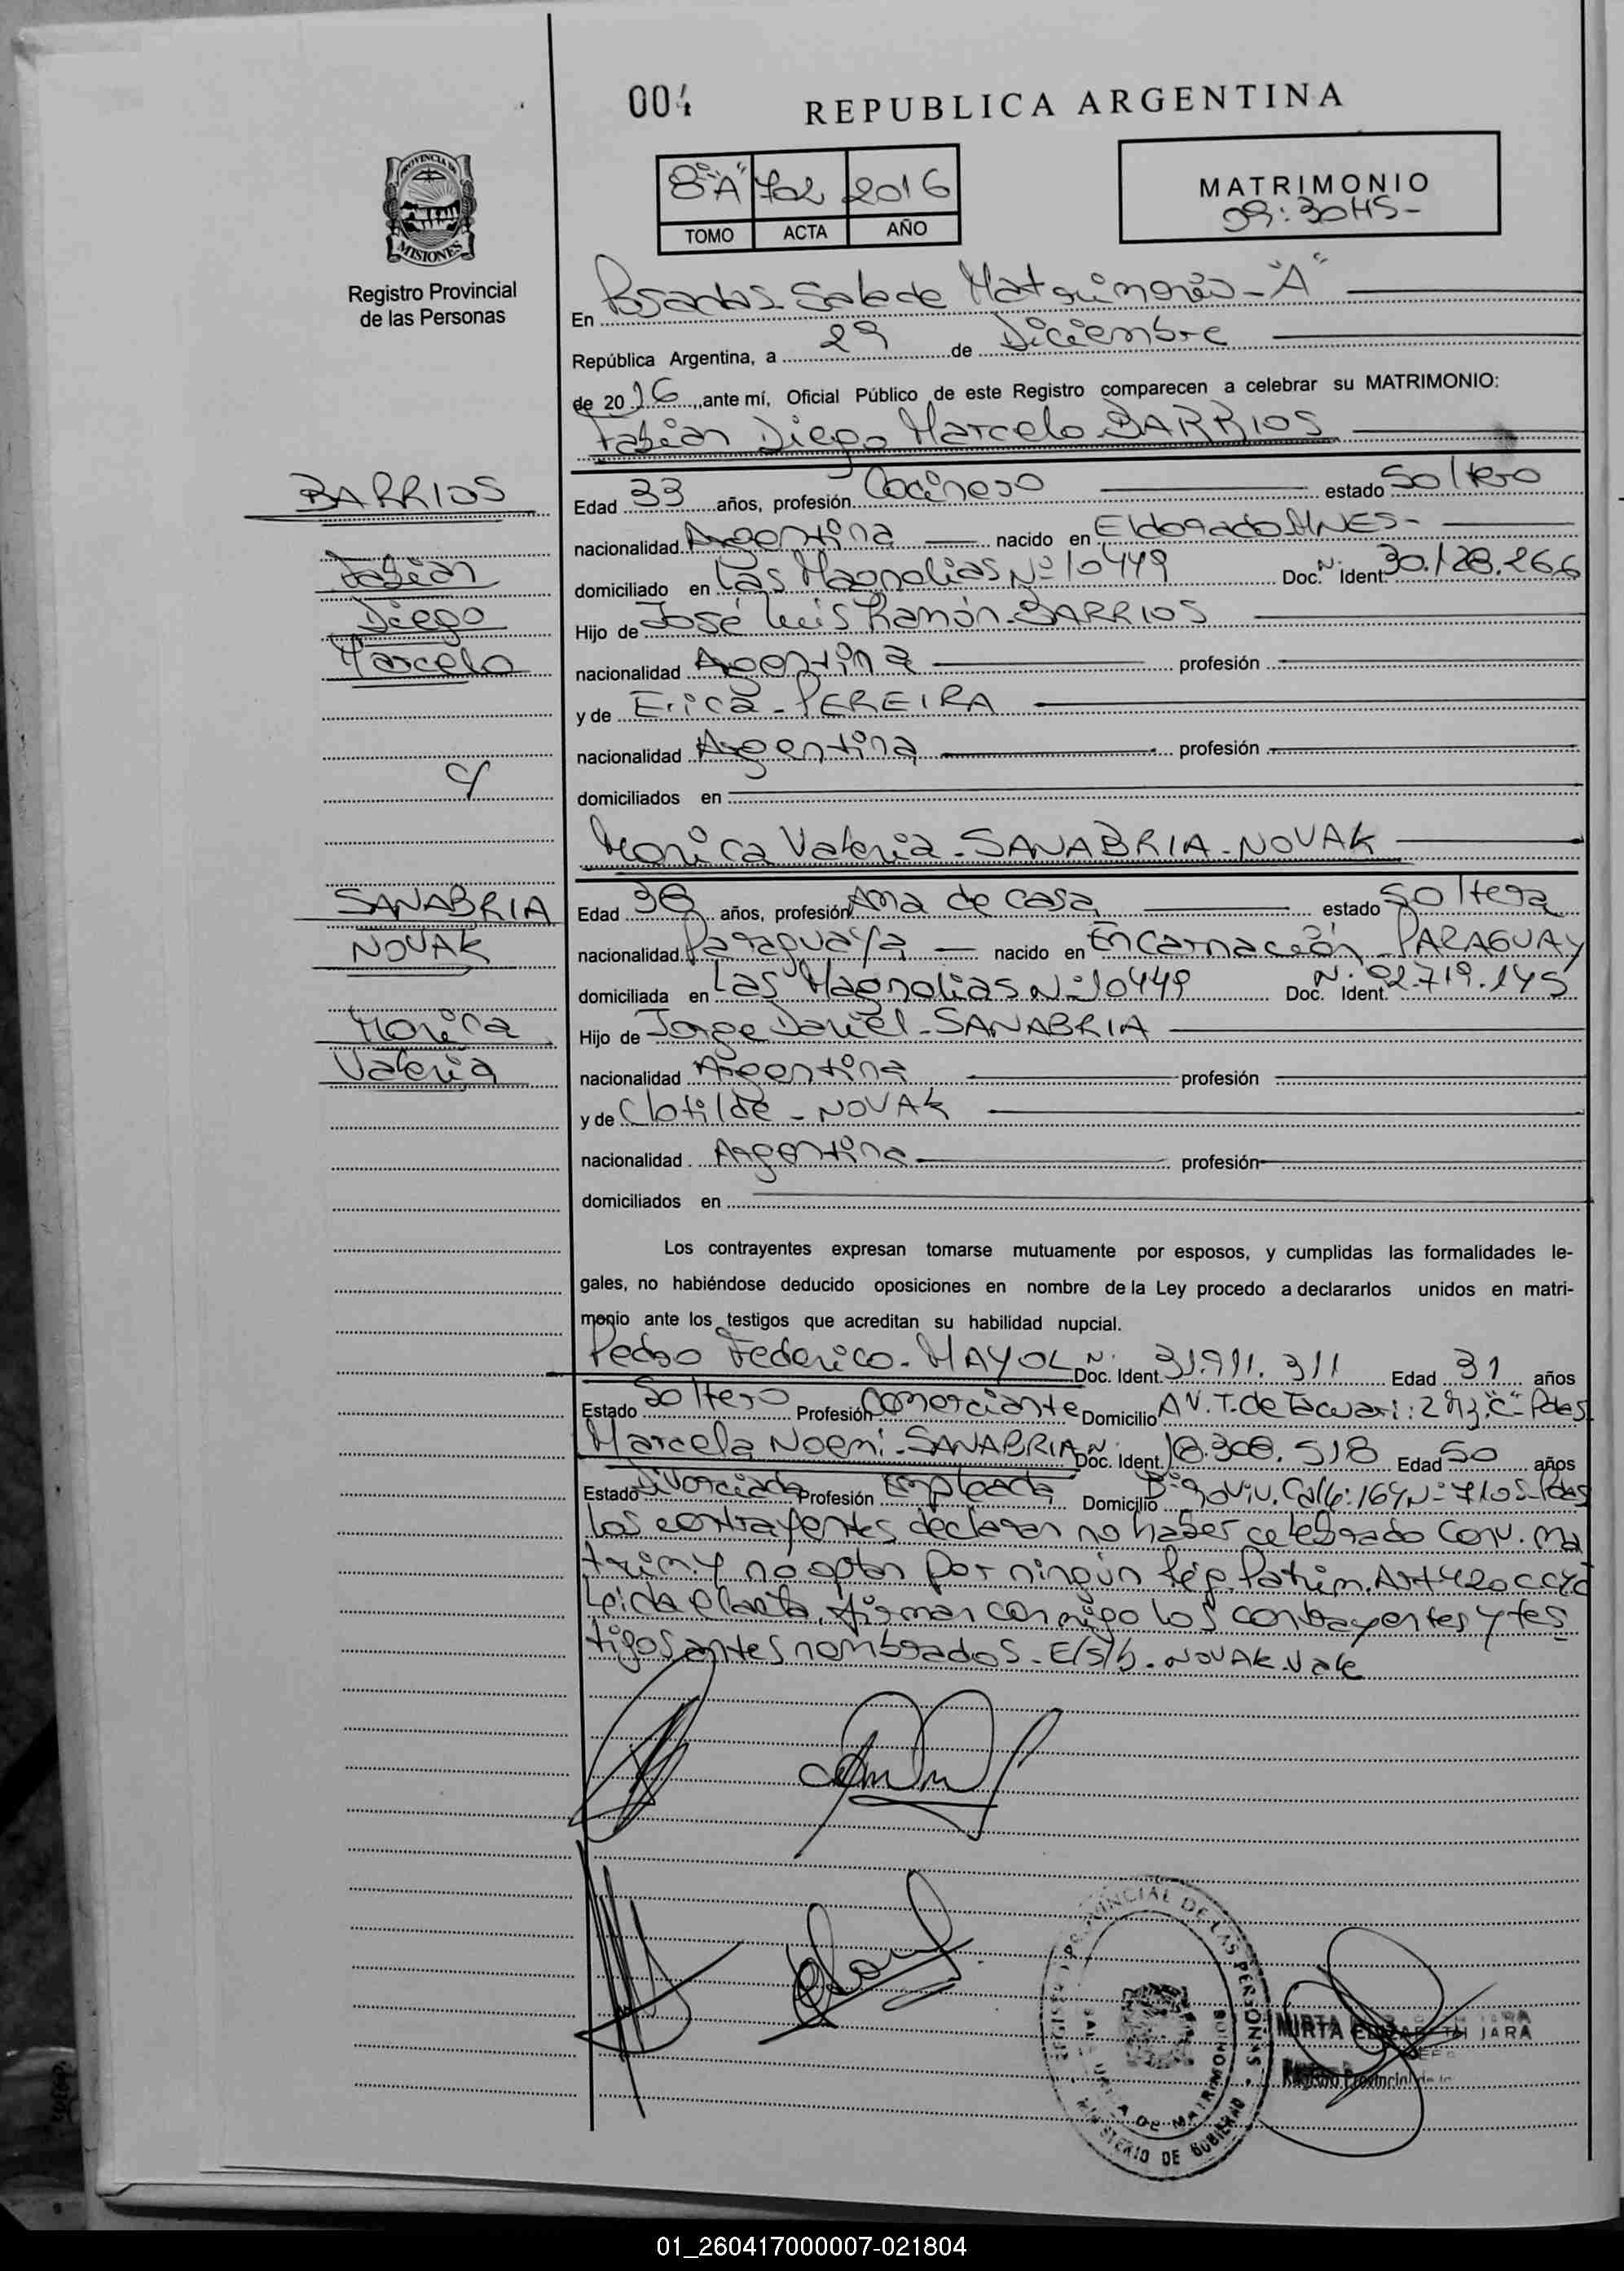 004
REPUBLICA ARGENTINA
PROVINCIA DE
MISIONES
Registro Provincial
de las Personas
8º"A" 702 2016
TOMO ACTA AÑO
MATRIMONIO
09:30HS-
En Posadas-Sala de Matrimonios-"A"
República Argentina, a 29 de Diciembre
de 2016, ante mí, Oficial Público de este Registro comparecen a celebrar su MATRIMONIO:
Fabián Diego Marcelo BARRIOS
BARRIOS
Fabián
Diego
Marcelo
Edad 33 años, profesión Cocinero estado Soltero
nacionalidad Argentina nacido en Eldorado MNES-
domiciliado en Las Magnolias Nº 10449 Doc. Nº Ident. 30.128.266
Hijo de José Luis Ramón-BARRIOS
nacionalidad Argentina profesión
y de Erica-PEREIRA
nacionalidad Argentina profesión
domiciliados en
c/
Monica Valeria-SANABRIA-NOVAK
SANABRIA
NOVAK
Monica
Valeria
Edad 38 años, profesión Ama de casa estado Soltera
nacionalidad Paraguaya nacido en Encarnación PARAGUAY
domiciliada en Las Magnolias Nº 10449 Doc. Nº Ident. 92.719.145
Hijo de Jorge Daniel-SANABRIA
nacionalidad Argentina profesión
y de Clotilde-NOVAK
nacionalidad Argentina profesión
domiciliados en
Los contrayentes expresan tomarse mutuamente por esposos, y cumplidas las formalidades le-
gales, no habiéndose deducido oposiciones en nombre de la Ley procedo a declararlos unidos en matri-
monio ante los testigos que acreditan su habilidad nupcial.
Pedro Federico-MAYOL Nº Doc. Ident. 31.911.311 Edad 31 años
Estado Soltero Profesión Comerciante Domicilio AV. T. de Tacuari: "C"-Pdas
Marcela Noemi-SANABRIA Nº Doc. Ident. 18.308.518 Edad 50 años
Estado Divorciada Profesión Empleada Domicilio Calle: 164 Nº 7105-Pdas
Los contrayentes declaran no haber celebrado Conv. Ma
trim. y no optan por ningún Rég. Patrim. Art 420 CCYC
Leida el acta, firman conmigo los contrayentes y tes
tigos antes nombrados-E/s/b. NOVAK.Vale
REGISTRO PROVINCIAL DE LAS PERSONAS
MINISTERIO DE GOBIERNO
MIRTA ELIZABETH JARA
JEFA
Registro Provincial de
01_260417000007-021804